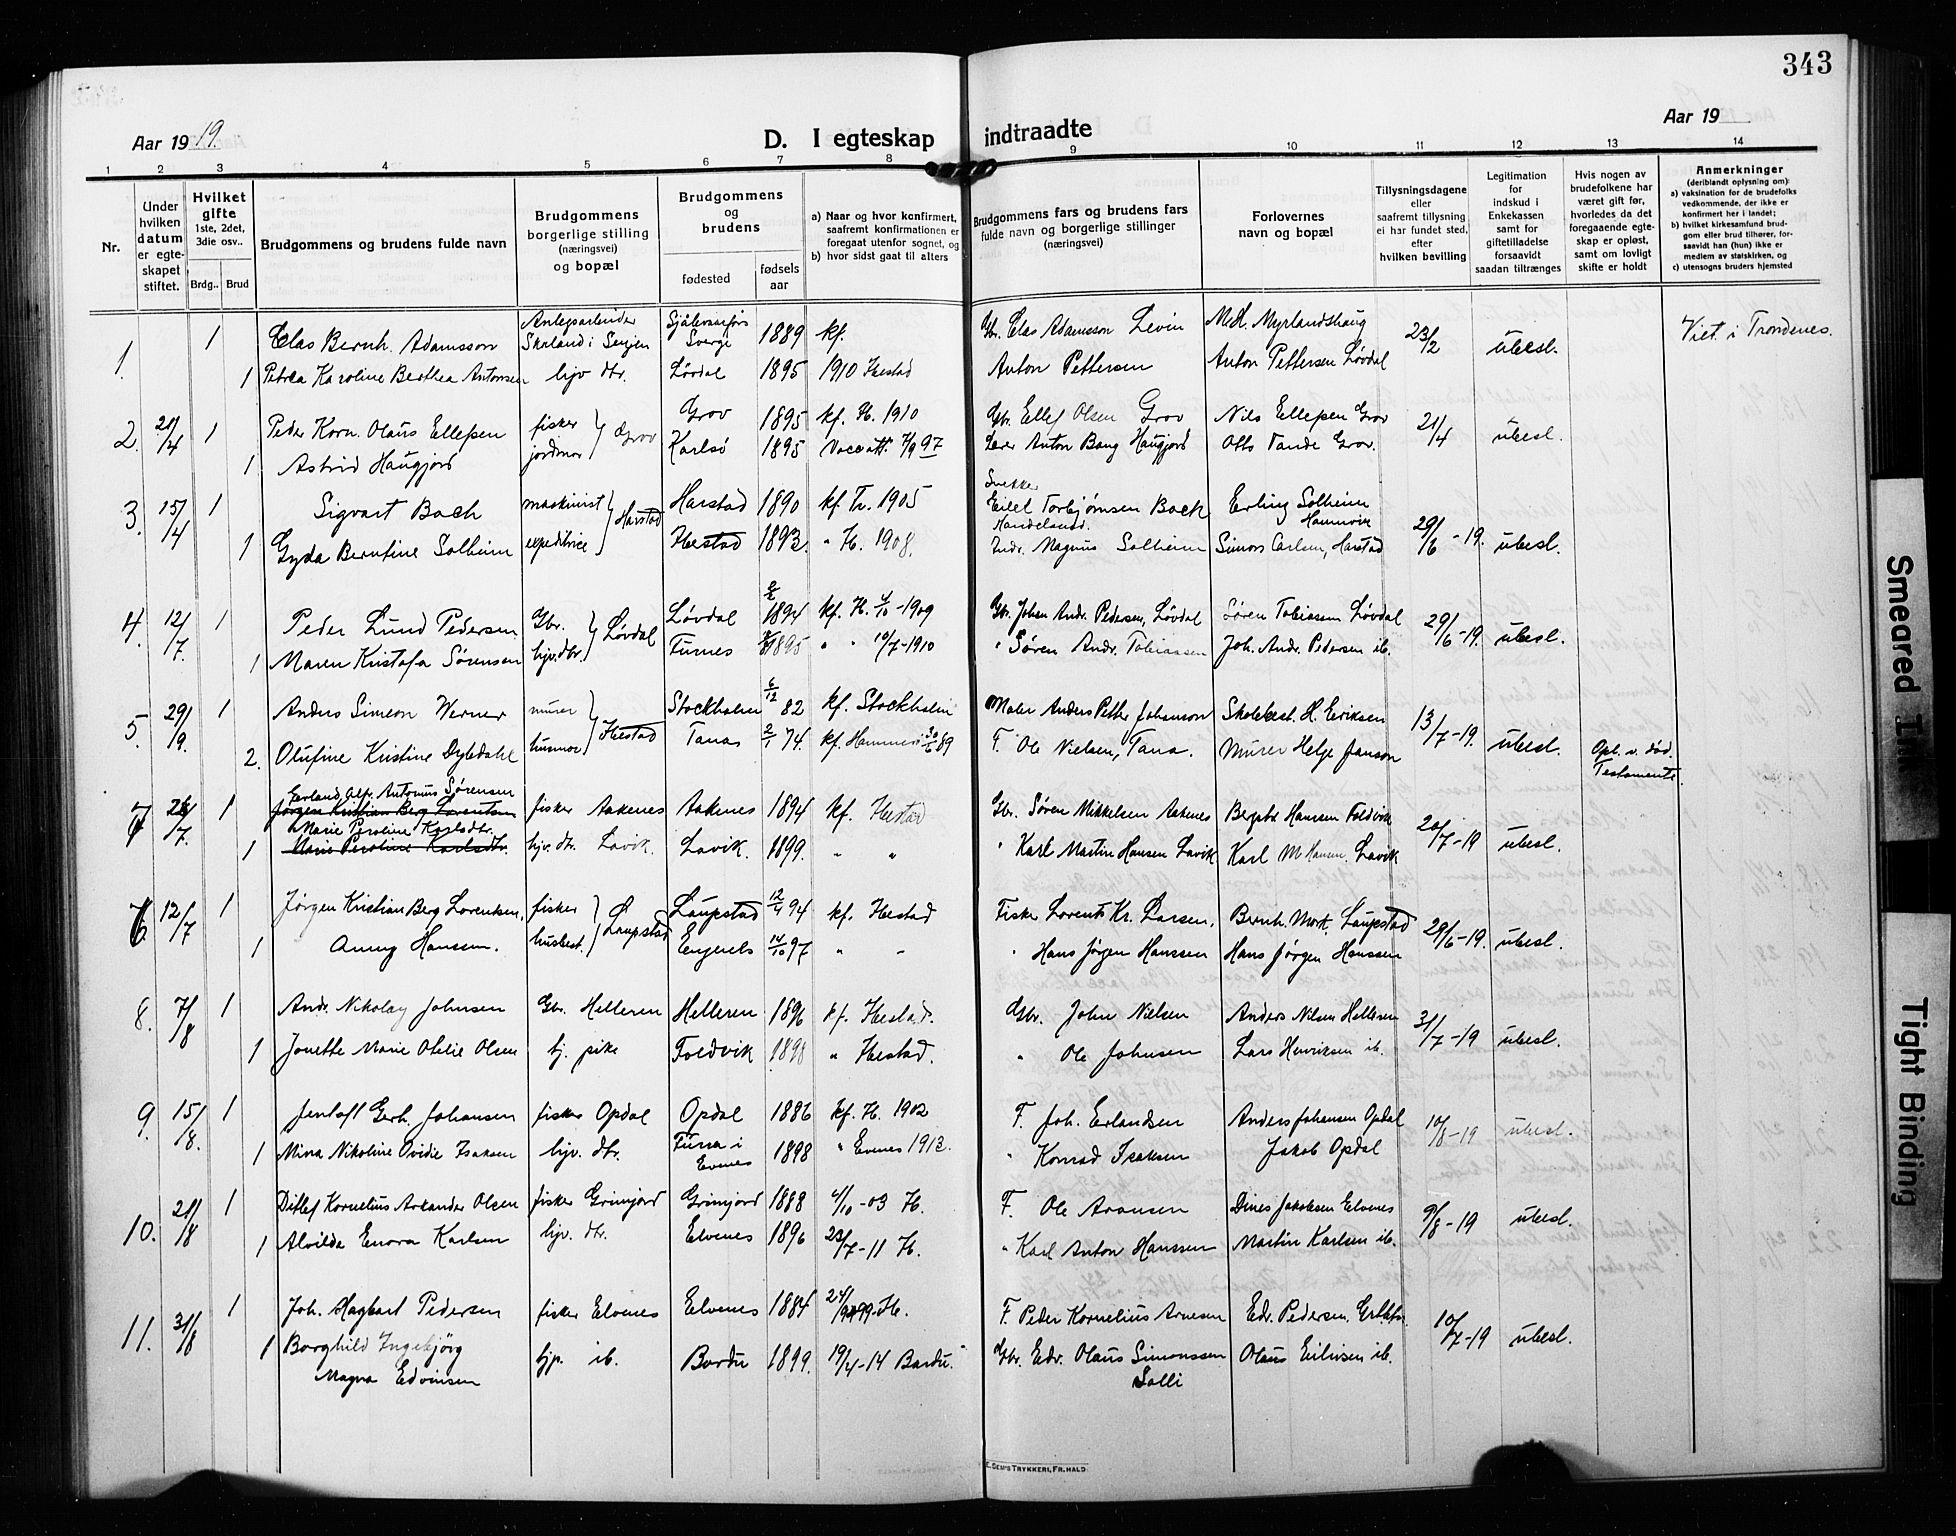 343
Aar 1919.
D. I egteskap indtraadte
Aar 19
1 2 3 4 5 6 7 8 9 10 11 12 13 14
Nr.
Under hvilken datum er egteskapet stiftet.
Hvilket gifte 1ste, 2det, 3die osv..
Brdg.. Brud
Brudgommens og brudens fulde navn
Brudgommens borgerlige stilling (næringsvei) og bopæl
Brudgommens og brudens
fødested fødsels aar
a) Naar og hvor konfirmert, saafremt konfirmationen er foregaat utenfor sognet, og
b) hvor sidst gaat til alters
Brudgommens fars og brudens fars fulde navn og borgerlige stillinger (næringsvei)
Forlovernes navn og bopæl
Tillysningsdagene eller saafremt tillysning ei har fundet sted, efter hvilken bevilling
Legitimation for indskud i Enkekassen samt for giftetilladelse forsaavidt saadan tiltrænges
Hvis nogen av brudefolkene har været gift før, hvorledes da det foregaaende egteskap er opløst, samt om lovligt skifte er holdt
Anmerkninger
(deriblandt oplysning om):
a) vaksination for de brudefolks vedkommende, der ikke er konfirmert her i landet;
b) hvilket kirkesamfund brudgom eller brud tilhører, forsaavidt han (hun) ikke er medlem av statskirken, og
c) utensogns bruders hjemsted
1. 1 Clas Bernh. Adamsson Anlegsarbeider Skøland i Senjen Sverge 1889 kf. Gbr. Clas Adamsson Levin M. Myrlandshaug 23/2 ubesl. Viet i Trondenes.
1 Petrea Karoline Berthea Antonsen hjv. dtr. Løvdal 1895 1910 Ibestad Anton Pettersen Anton Pettersen Løvdal
2. 21/4 1 Peder Korn. Olaus Ellefsen fisker Grov Grov 1895 kf. Ib. 1910 Gbr. Ellef Olsen Grov Nils Ellefsen Grov 21/4 ubesl.
1 Astrid Haugjord jordmor Karlsø 1895 Vacc.att. 7/9 97 Lærer Anton Bang Haugjord Otto Tande Grov.
3. 15/4 1 Sigvart Bach maskinist Harstad Harstad 1890 kf. Tr. 1905 Snekker Eilel Torbjørnsen Bach Erling Solheim Hamnvik 29/6 - 19. ubesl.
1 Gyda Berntine Solheim expeditrice Ibestad 1893. " Ib. 1908. Handelsmd. Andr. Magnus Solheim Simon Carlsen, Harstad
4. 12/7. 1 Peder Lund Pedersen Gbr. Løvdal Løvdal 1894 kf. Ib. 4/10 - 1909 Gbr. Johan Andr. Pedersen, Løvdal Søren Tobiassen Løvdal 29/6 - 19. ubesl.
1 Maren Kristofa Sørensen hjv. dtr. Furnes 1895 " " 10/7 - 1910 " Søren Andr. Tobiassen Joh. Andr. Pedersen ib.
5. 29/9. 1 Anders Simeon Werner murer Ibestad Stockholm 6/12 82 kf. Stockholm Maler Anders Petter Johanson Skolebest. H. Eriksen 13/7 - 19. ubesl.
2. Olufine Kristine Dybdahl husmor Tana 2/1 74. kf. Hammerf. 89 F. Ole Nielsen, Tana. Murer Helge Janson Opl. v. død. Testamente
7 /7. 1 Erland Alf. Antonius Sørensen fisker Aakenes Aakenes 1894 kf. Ibestad Gbr. Søren Mikkelsen Aakenes Bergitel Hansen Foldvik 20/7 - 19 ubesl.
Jørgen Kristian Berg Lorentsen
1 Marie Peroline Karlsdtr. hjv. dtr. Lavik. Lavik. 1899. " " " Karl Martin Hansen Lavik Karl M Hansen Lavik
Marie Peroline Karlsdtr.
6 12/7 1 Jørgen Kristian Berg Lorentsen, fisker Laupstad Laupstad 12/4 94 kf. Ibestad Fisker Lorents Kr. Larsen, Bernh. Mort. Laupstad 29/6 - 19. ubesl.
1 Anny Hansen. husbest. Engenes 14/10 97 " - " Hans Jørgen Hanssen Hans Jørgen Hanssen
8. 7/8 1 Andr. Nikolay Johnsen Gbr. Helleren Helleren 1896 kf. Ibestad. Gbr. John Nielsen Anders Nilsen Helleren 31/7 - 19 ubesl.
1 Jonette Marie Otelie Olsen tj. pike Foldvik 1898 " Ibestad. " Ole Johnsen Lars Henriksen ib.
9. 15/8. 1 Jentoft Gerh. Johansen fisker Opdal Opdal 1886 kf. Ib. 1902 F. Joh. Erlandsen Anders Johansen Opdal 10/8 - 19 ubesl.
1 Mina Nikoline Ovidie Isaksen hjv. dtr. i Evenes 1898 " Evenes 1913. " Konrad Isaksen Jakob Opdal
10. 21/8 1 Ditlef Kornelius Arlander Olsen fisker Grimjord Grimjord 1888 4/10 - 03 Ib. F. Ole Aronsen Dines Jakobsen Elvenes 9/8 - 19 ubesl.
1 Alvilde Enora Karlsen hjv. dtr. Elvenes 1896 23/7 - 11 Ib. " Karl Anton Hanssen Martin Karlsen ib.
11. 31/8 1 Joh. Hagbart Pedersen fisker Elvenes Elvenes 1884 24/9 99 Ib. F. Peder Kornelius Arnesen Edv. Pedersen 10/7 - 19 ubesl.
1 Borghild Ingebjørg Magna Edvinsen tjp. ib. Bardu 1899. 19/4 - 14 Bardu. Gbr. Edv. Olaus Simonssen Solli Olaus Eilivsen ib.
E. SEMS TRYKKERI, FR.HALD
Smeared Ink
Tight Binding